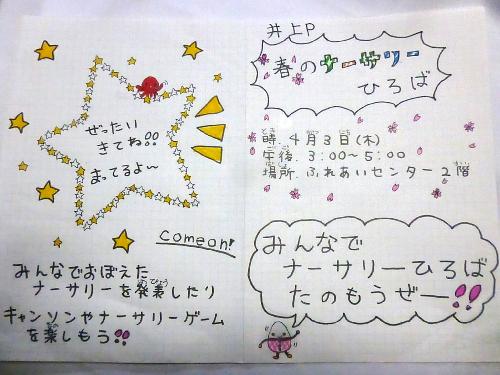 井上P
春のナーサリー
ひろば
時. 4月3日(木)
とき がつ にち
午後. 3:00~5:00
ごご
場所. ふれあいセンター2階
ばしょ かい
みんなで
ナーサリーひろば
たのもうぜー!!
ぜったい
きてね!!
まってるよ~
comeon!
みんなでおぼえた
ナーサリーを発表したり
はっぴょう
キャンソンやナーサリーゲーム
を楽しもう!!
たの